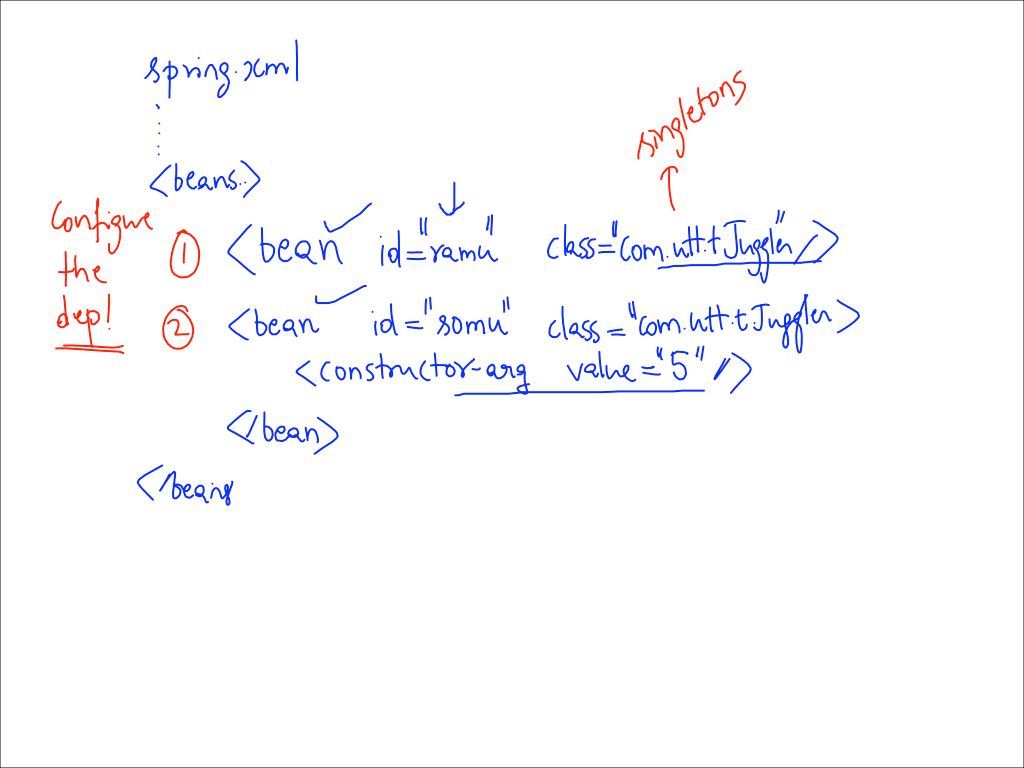 spring.xml
singletons
<beans..>
Configue
the
dep!
① <bean id="ramu" class="com.utt.t Juggler"/>
② <bean id="somu" class="com.utt.t Juggler>
<constructor-arg value="5" />
</bean>
</beans